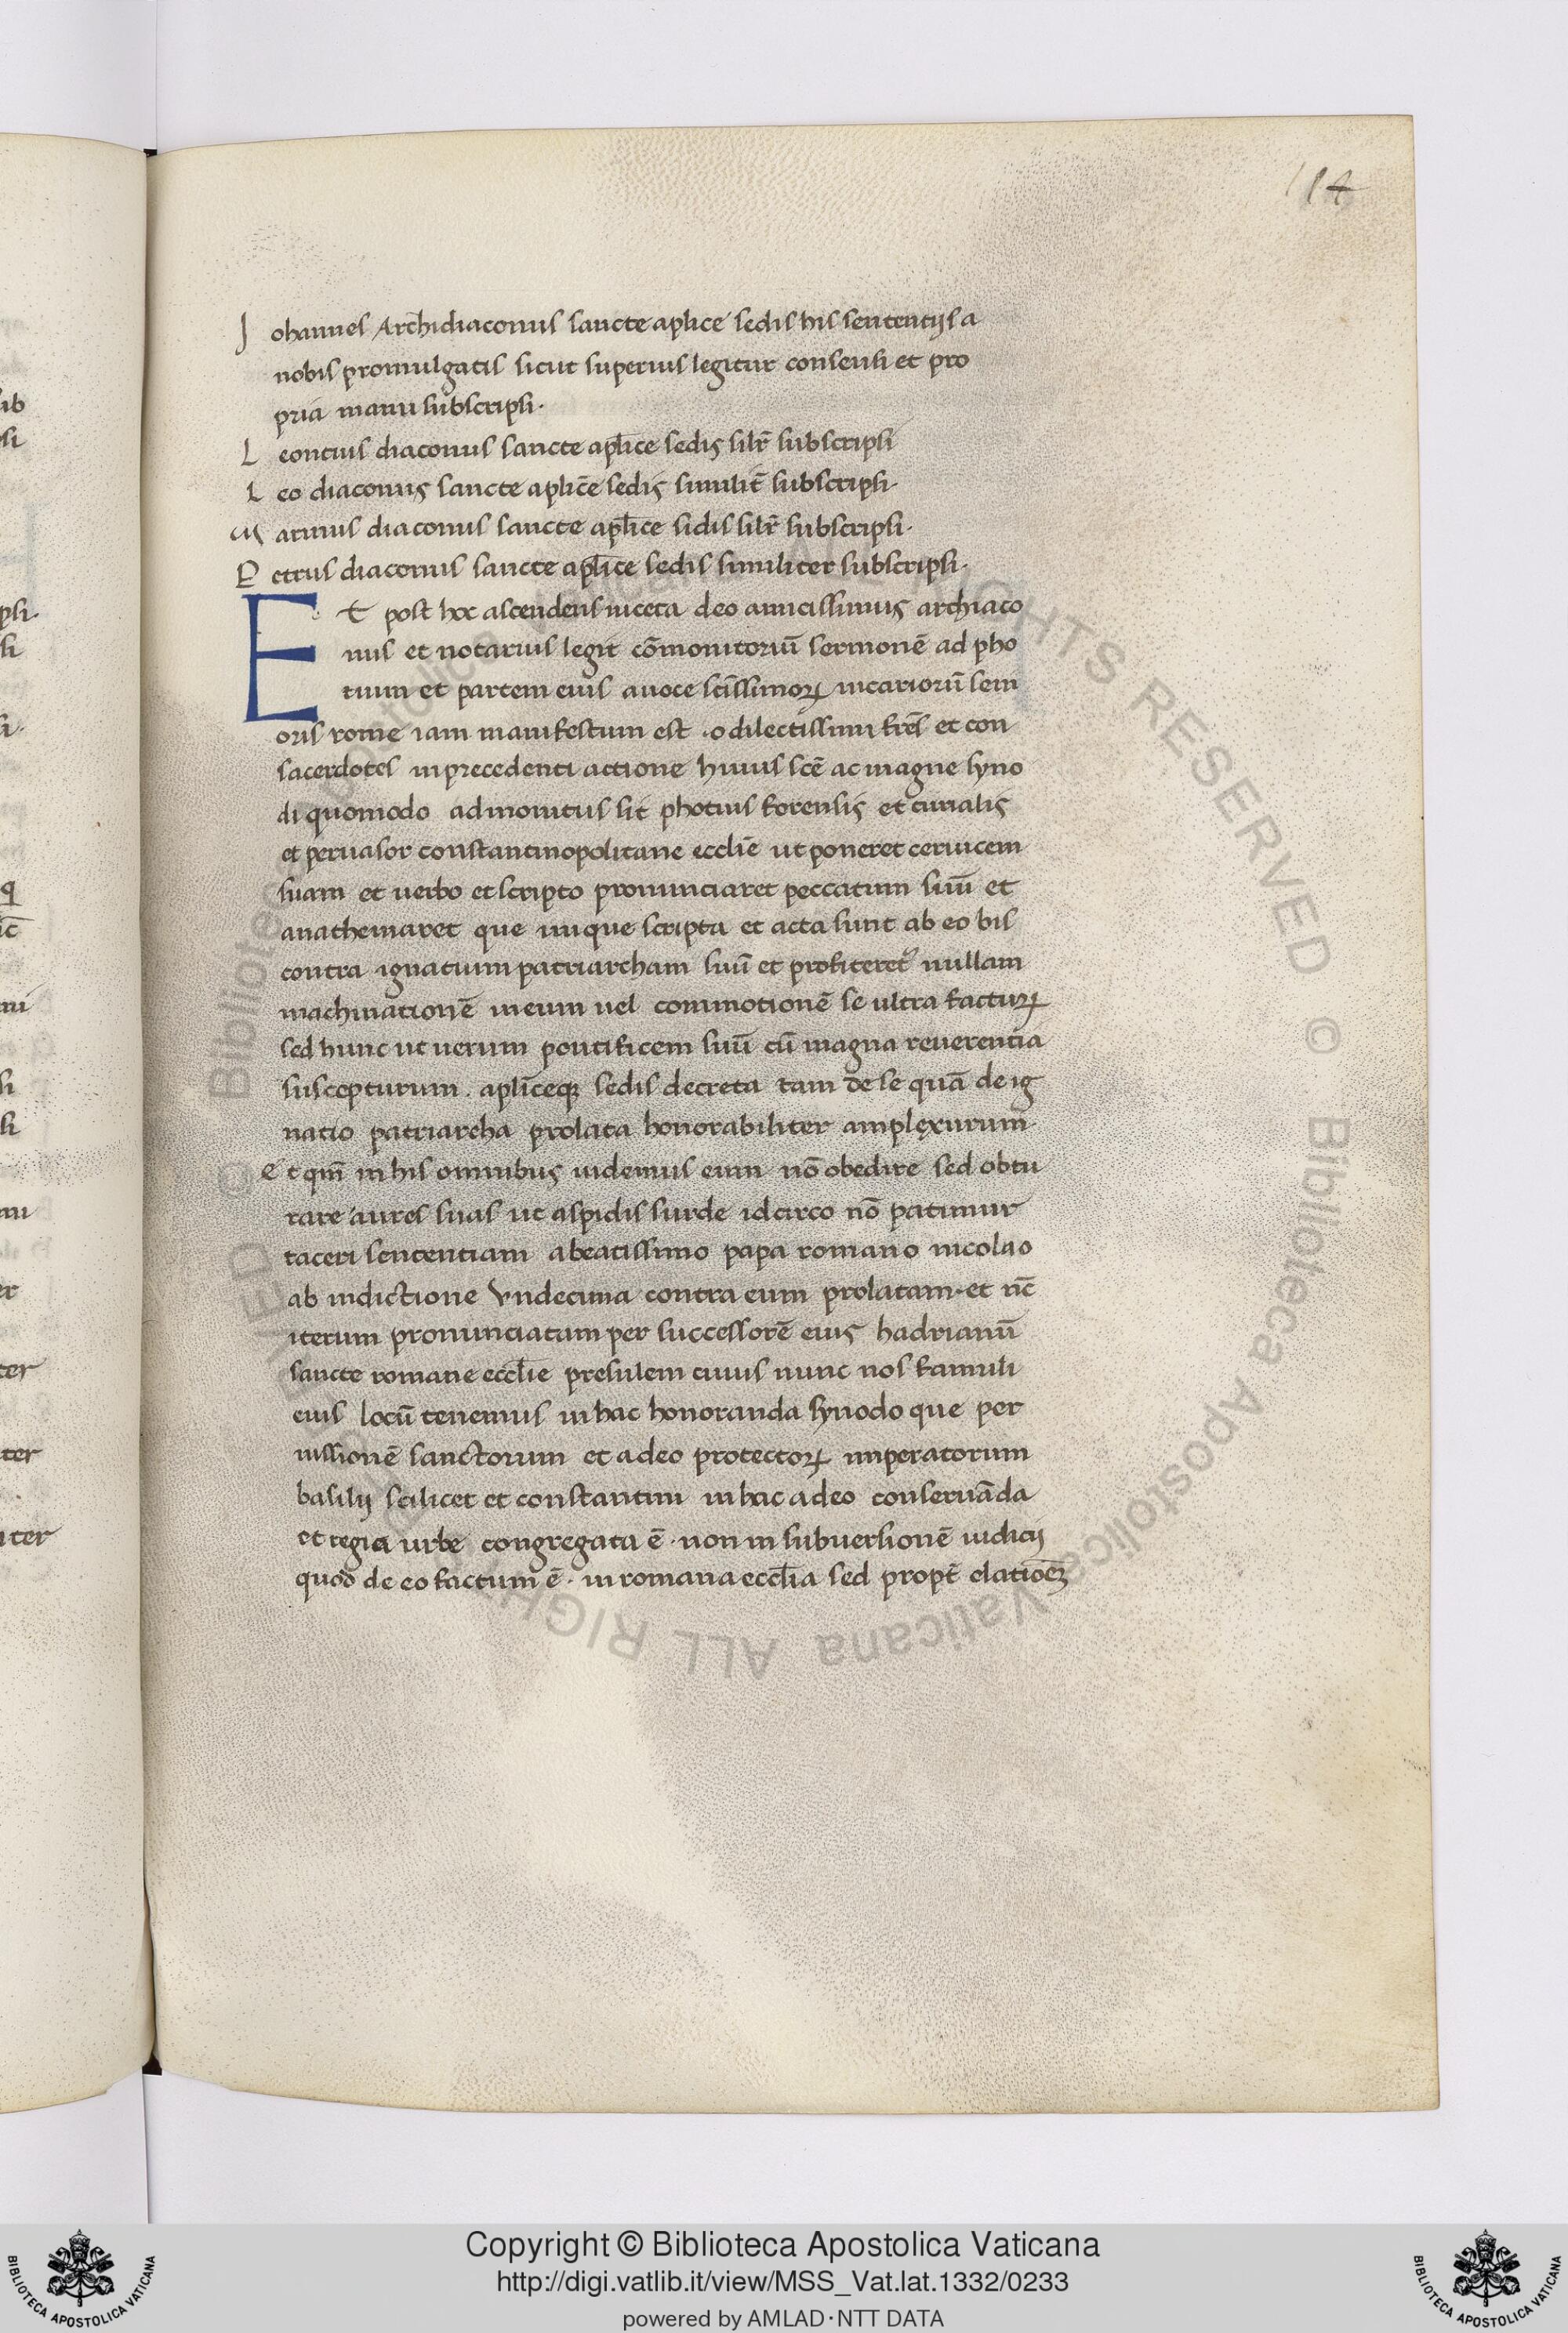 114
Johannes Archidiaconus sancte aplice sedis his sententijs a
nobis promulgatis sicut superius legitur consensi et pro
pria manu subscripsi·
Leontius diaconus sancte apl̄ice sedis silr̄ subscripsi
Leo diaconus sancte aplic̄e sedis similit̄ subscripsi·
Marinus diaconus sancte apl̄ice sidis silr̄ subscripsi·
Petrus diaconus sancte apl̄ice sedis similiter subscripsi·
Et post hoc ascendens niceta deo amicissimus archiaco
nus et notarius legit cōmonitoriū sermonē ad pho
tium et partem eius a uoce sc̄issimoꝝ uicarioru᷄ sem
oris rome iam manifestum est · o dilectissimi fr̄es et con
sacerdotes in precedenti actione huius scē ac magne syno
di quomodo admonitus sit photius forensis et curialis
et peruasor constantinopolitane eccliē ut poneret ceruicem
suam et uerbo et scripto pronunciaret peccatum suū et
anathemaret que unque scripta et acta sunt ab eo bis
contra ignatium patriarcham suū et profiteret᷒ nullam
machinationē in eum uel commotionē se ultra facturꝝ
sed hunc ut uerum pontificem suū cū magna reuerentia
suscepturum · apl̄iceqꝫ sedis decreta tam de se quā de ig
natio patriarcha prolata honorabiliter amplexurum·
Et qm̄ in his omnibus uidemus eum nō obedire sed obtu
rare aures suas ut aspidis surde idcirco nō patimur
taceri sententiam a beatissimo papa romano nicolao
ab indictione Vndecima contra eum prolatam· et nc̄
iterum pronunciatam per successorē eius hadrianū
sancte romane eccl̄ie presulem cuius nunc nos famuli
eius locū tenemus in hac honoranda synodo que per
iussionē sanctorum et a deo protectoꝝ imperatorum
basilij scilicet et constantini in hac a deo conseruāda
et regia urbe congregata ē · non in subuersionē iudicij
quod de eo factum ē · in romana eccl̄ia sed propt̄ elationēꝫ
ub
si
psi·
si
si·
q
ic̄
ni
si
si
ni
er
ter
ter
iter
© Biblioteca Apostolica Vaticana ALL RIGHTS RESERVED © Biblioteca Apostolica Vaticana ALL RIGHTS RESERVED
Copyright © Biblioteca Apostolica Vaticana
http://digi.vatlib.it/view/MSS_Vat.lat.1332/0233
powered by AMLAD·NTT DATA
BIBLIOTECA APOSTOLICA VATICANA
BIBLIOTECA APOSTOLICA VATICANA